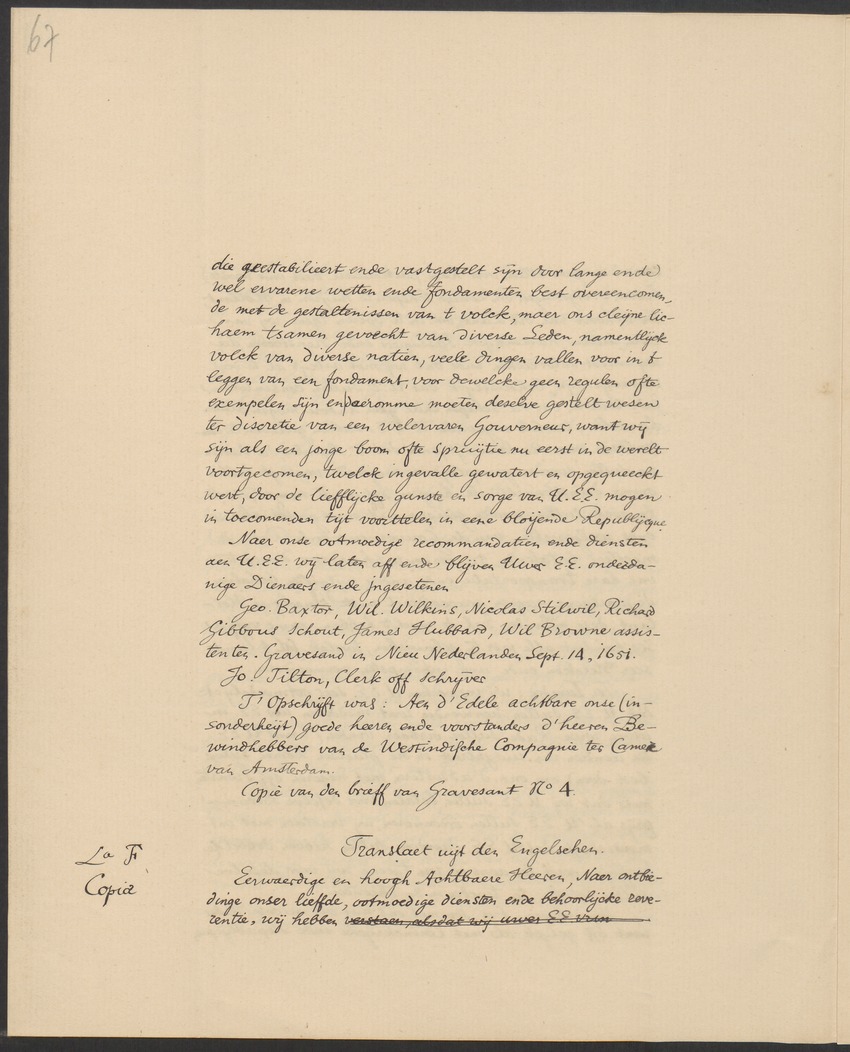 67
die geestabilieert ende vastgestelt sijn door lange ende
wel ervarene wetten ende fondamenten best overeencomen,
de met de gestaltenissen van t volck, maer ons cleijne lic-
haem tsamen gevoecht van diverse Leden, namentlijck
volck van diverse natien, veele dingen vallen voor in t
leggen van een fondament, voor dewelcke geen regulen ofte
exempelen sijn en daeromme moeten deselve gestelt wesen
ter discretie van een welervaren Gouverneur, want wij
sijn als een jonge boom ofte spruijtie nu eerst in de werelt
voortgecomen, twelck ingevalle gewatert en opgequeeckt
wert, door de liefflijcke gunste en sorge van U.E.E. mogen
in toecomenden tijt voorttelen in eene bloijende Republijcque
Naer onse ootmoedige recommandatien ende diensten
aen U.E.E. wij laten aff ende blijven Uwer E.E. onderda-
nige Dienaers ende jngesetenen
Geo. Baxter, Wil. Wilkins, Nicolas Stilwil, Richard
Gibbous Schout, James Hubbard, Wil Browne assis-
tenten. Gravesand in Nieu Nederlanden Sept. 14, 1651.
Jo: Tilton, Clerk off schrijver
T' Opschrijft was: Aen d' Edele achtbare onse (in-
sonderheijt) goede heeren ende voorstanders d' heeren Be-
windhebbers van de Westindische Compagnie ter Camer
van Amsterdam.
Copie van den brieff van Gravesant No 4.
Translaet uijt den Engelschen.
La F
Copia
Eerwaerdige en hoogh Achtbaere Heeren, Naer ontbie-
dinge onser lieffde, ootmoedige diensten ende behoorlijcke reve-
rentie, wij hebben verstaen, alsdat wij uwer EE vrun